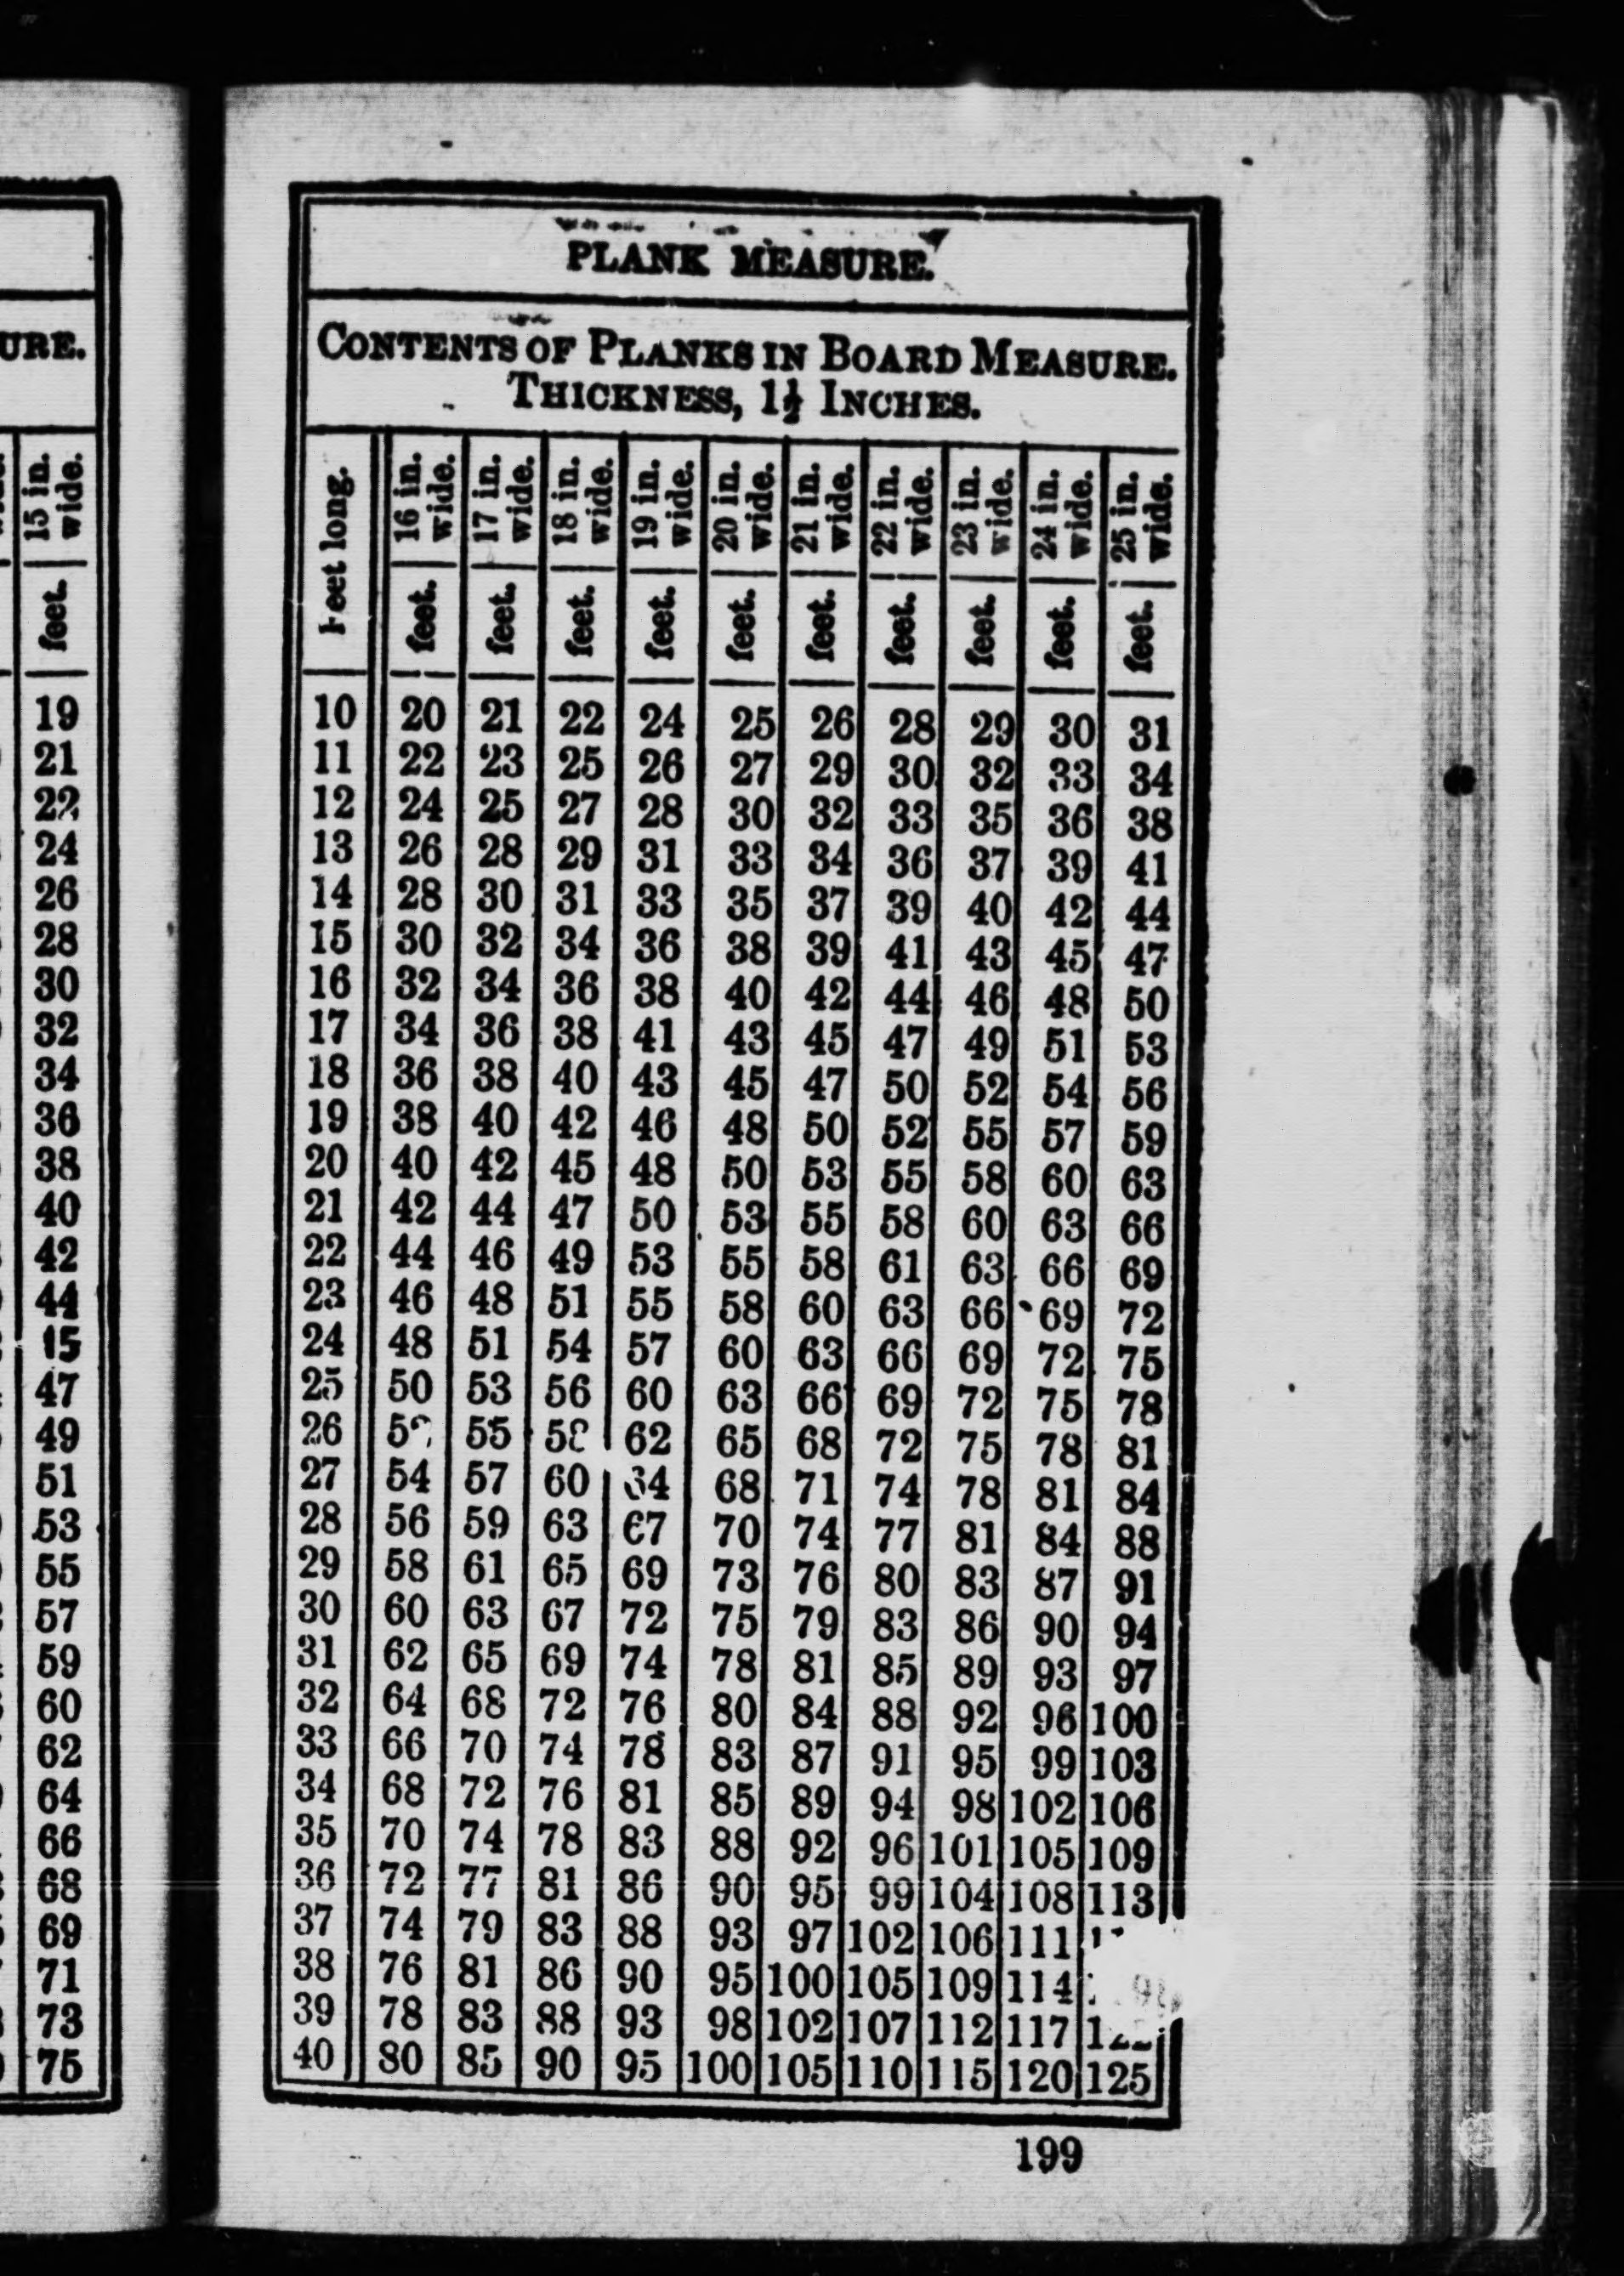 URE.
15 in. wide.
feet.
19
21
22
24
26
28
30
32
34
36
38
40
42
44
15
47
49
51
53
55
57
59
60
62
64
66
68
69
71
73
75
PLANK MEASURE.
CONTENTS OF PLANKS IN BOARD MEASURE.
THICKNESS, 1½ INCHES.
Feet long. 16 in. wide. 17 in. wide. 18 in. wide. 19 in. wide. 20 in. wide. 21 in. wide. 22 in. wide. 23 in. wide. 24 in. wide. 25 in. wide.
feet. feet. feet. feet. feet. feet. feet. feet. feet. feet.
10 20 21 22 24 25 26 28 29 30 31
11 22 23 25 26 27 29 30 32 33 34
12 24 25 27 28 30 32 33 35 36 38
13 26 28 29 31 33 34 36 37 39 41
14 28 30 31 33 35 37 39 40 42 44
15 30 32 34 36 38 39 41 43 45 47
16 32 34 36 38 40 42 44 46 48 50
17 34 36 38 41 43 45 47 49 51 53
18 36 38 40 43 45 47 50 52 54 56
19 38 40 42 46 48 50 52 55 57 59
20 40 42 45 48 50 53 55 58 60 63
21 42 44 47 50 53 55 58 60 63 66
22 44 46 49 53 55 58 61 63 66 69
23 46 48 51 55 58 60 63 66 69 72
24 48 51 54 57 60 63 66 69 72 75
25 50 53 56 60 63 66 69 72 75 78
26 55 62 65 68 72 75 78 81
27 54 57 60 64 68 71 74 78 81 84
28 56 59 63 67 70 74 77 81 84 88
29 58 61 65 69 73 76 80 83 87 91
30 60 63 67 72 75 79 83 86 90 94
31 62 65 69 74 78 81 85 89 93 97
32 64 68 72 76 80 84 88 92 96 100
33 66 70 74 78 83 87 91 95 99 103
34 68 72 76 81 85 89 94 98 102 106
35 70 74 78 83 88 92 96 101 105 109
36 72 77 81 86 90 95 99 104 108 113
37 74 79 83 88 93 97 102 106 111
38 76 81 86 90 95 100 105 109 114
39 78 83 88 93 98 102 107 112 117
40 80 85 90 95 100 105 110 115 120 125
199